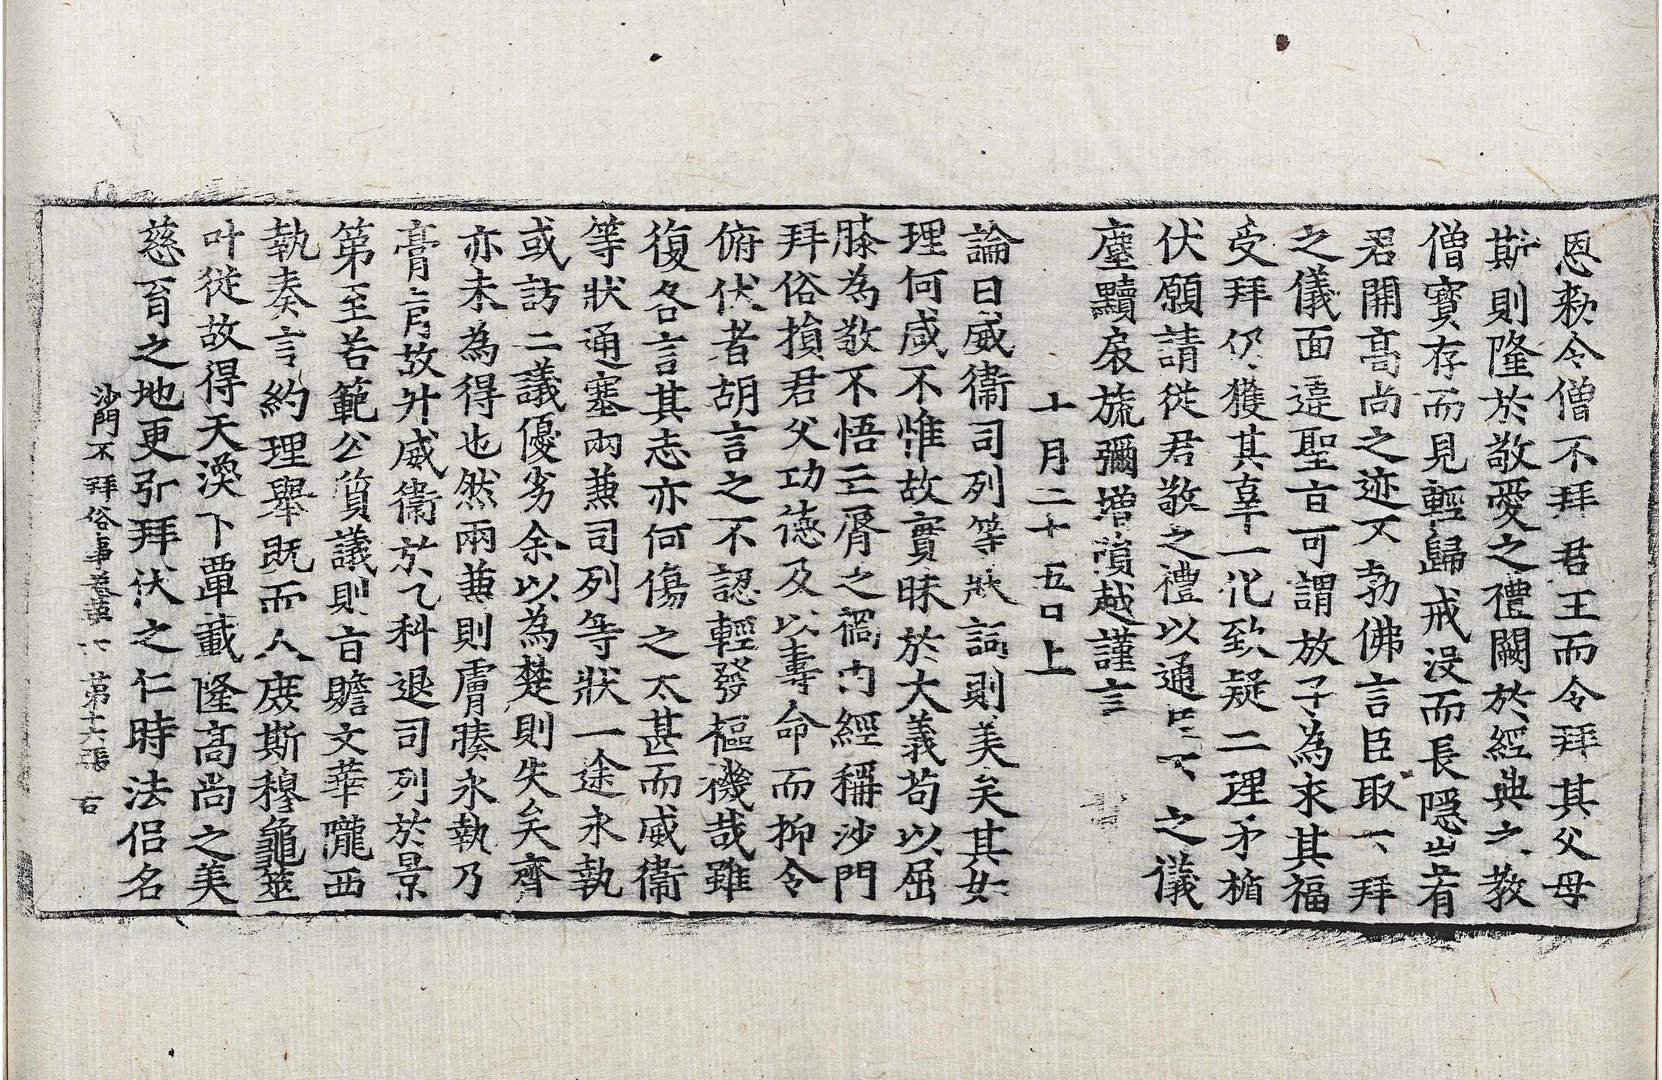 恩勑令僧不拜君王而令拜其父母
斯則隆於敬愛之禮闕於經典之教
僧寶存而見輕歸戒沒而長隱豈有
君開高尚之迹不勃佛言臣取下拜
之儀面違聖旨可謂放子為求其福
受拜仍獲其辜一化致疑二理矛楯
伏願請從君敬之禮以通臣下之議
塵黷扆旒彌增隕越謹言
十月二十五日上
論曰威衞司列等狀詞則美矣其如
理何咸不惟故實昧於大義苟以屈
膝為敬不悟亡脣之禍內經稱沙門
拜俗損君父功德及以壽命而抑令
俯伏者胡言之不認輕發樞機哉雖
復各言其志亦何傷之太甚而威衞
等狀通塞兩兼司列等狀一途永執
或訪二議優劣余以為楚則失矣齊
亦未為得也然兩兼則膚腠永執乃
膏肓故升威衞於乙科退司列於景
第至若範公質議則旨贍文華隴西
執奏言約理舉既而人庶斯穆龜筮
叶從故得天渙下覃載隆高尚之美
慈育之地更弘拜伏之仁時法侣名
沙門不拜俗事卷第六 第十六張 右